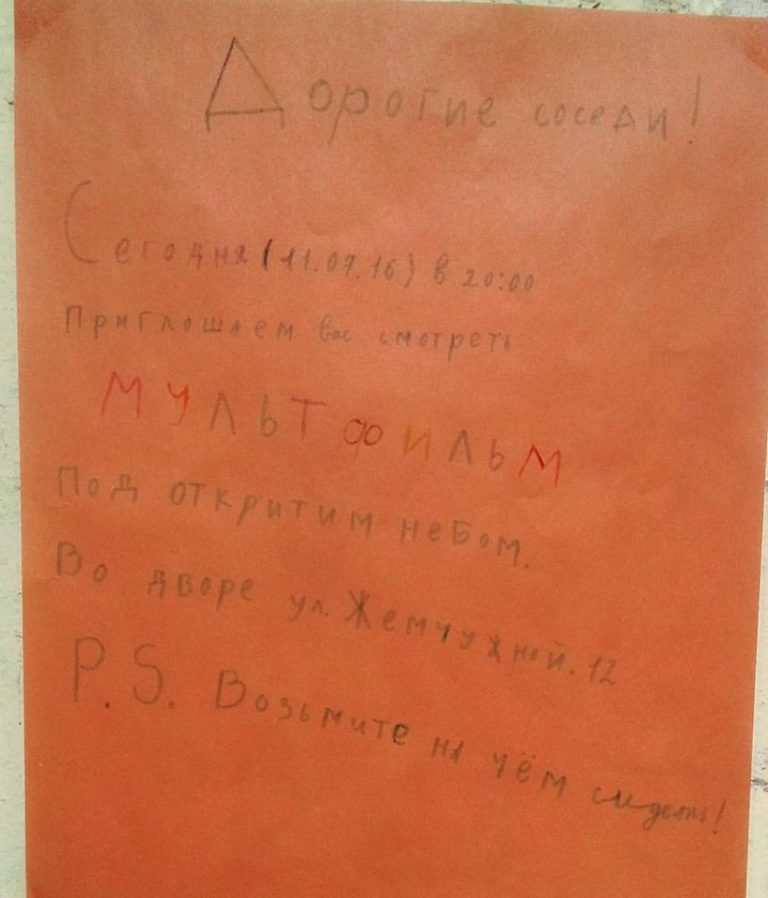 Дорогие соседи!
Сегодня (11.07.16) в 20:00
Приглошаем вас смотреть
МУЛЬТФИЛЬМ
Под откритим небом.
Во дворе ул. Жемчужной. 12
P.S. Возьмите на чём сидеть!